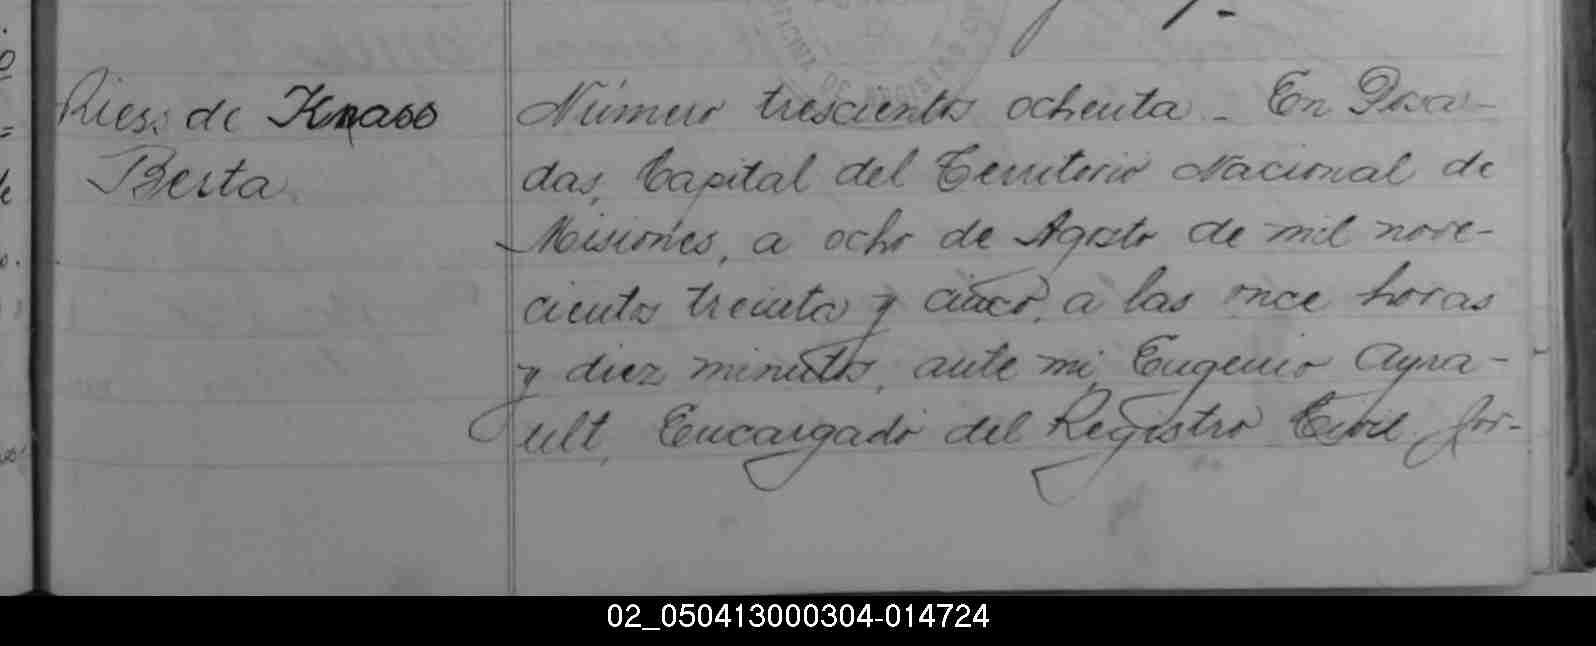 Riess de Knass
Berta
Número trescientos ochenta - En Posa-
das, Capital del Territorio Nacional de
Misiones, a ocho de Agosto de mil nove-
cientos treinta y cinco, a las once horas
y diez minutos, ante mi, Eugenio Ayra-
ult, Encargado del Registro Civil, Jor-
02_050413000304-014724